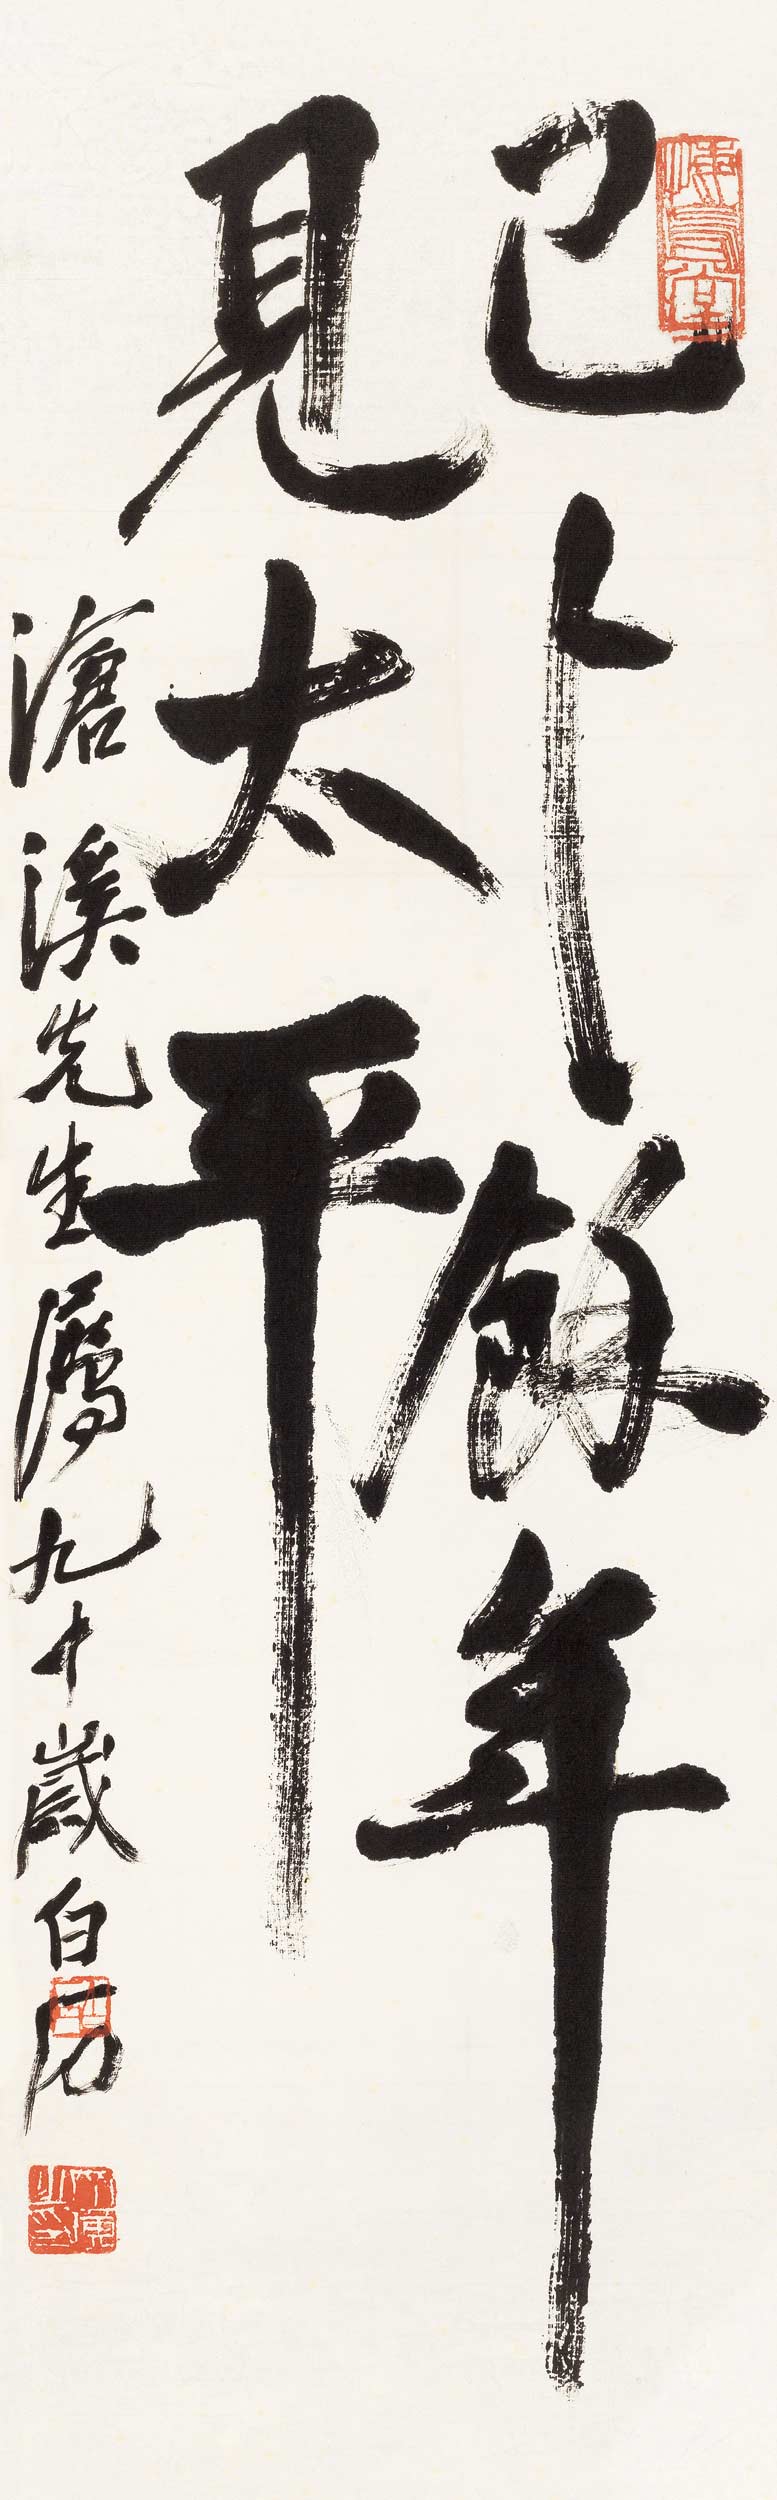 已卜餘年
見太平
滄溪先生屬九十歲白石
悔烏堂